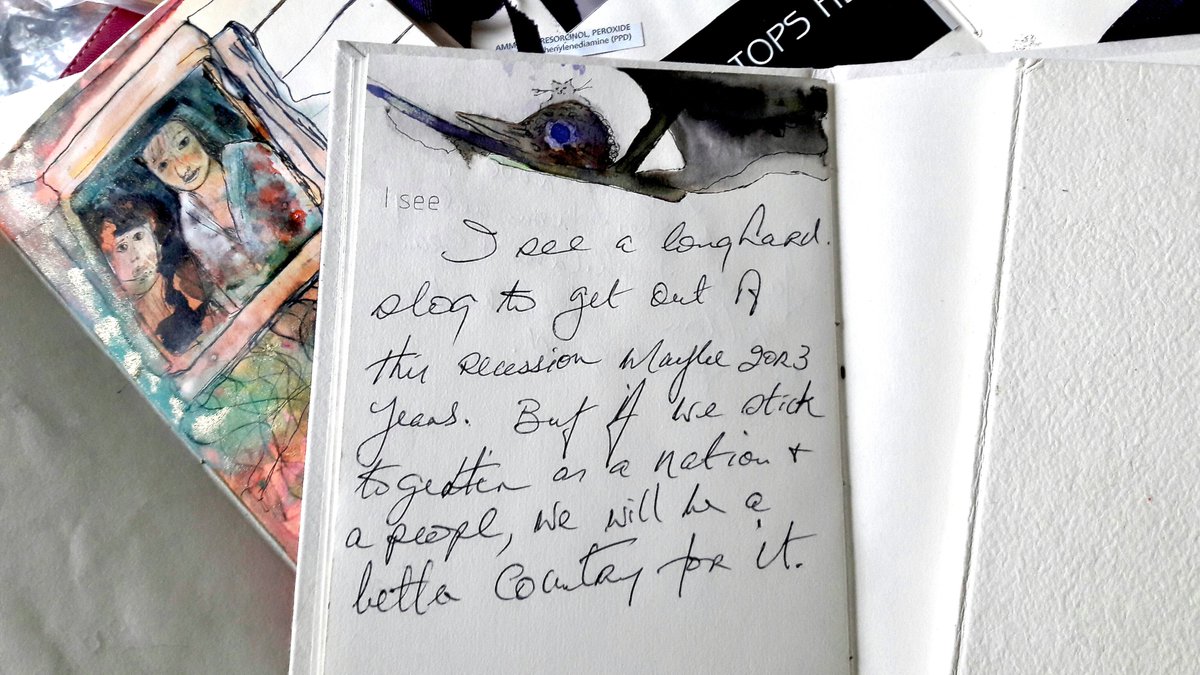 AMM RESORCINOL, PEROXIDE
henylenediamine (PPD)
TOPS HE
I see
I see a long hard.
slog to get out of
this recession Maybe 2 or 3
years. But if we stick
together as a nation +
a people, we will be a
better Country for it.